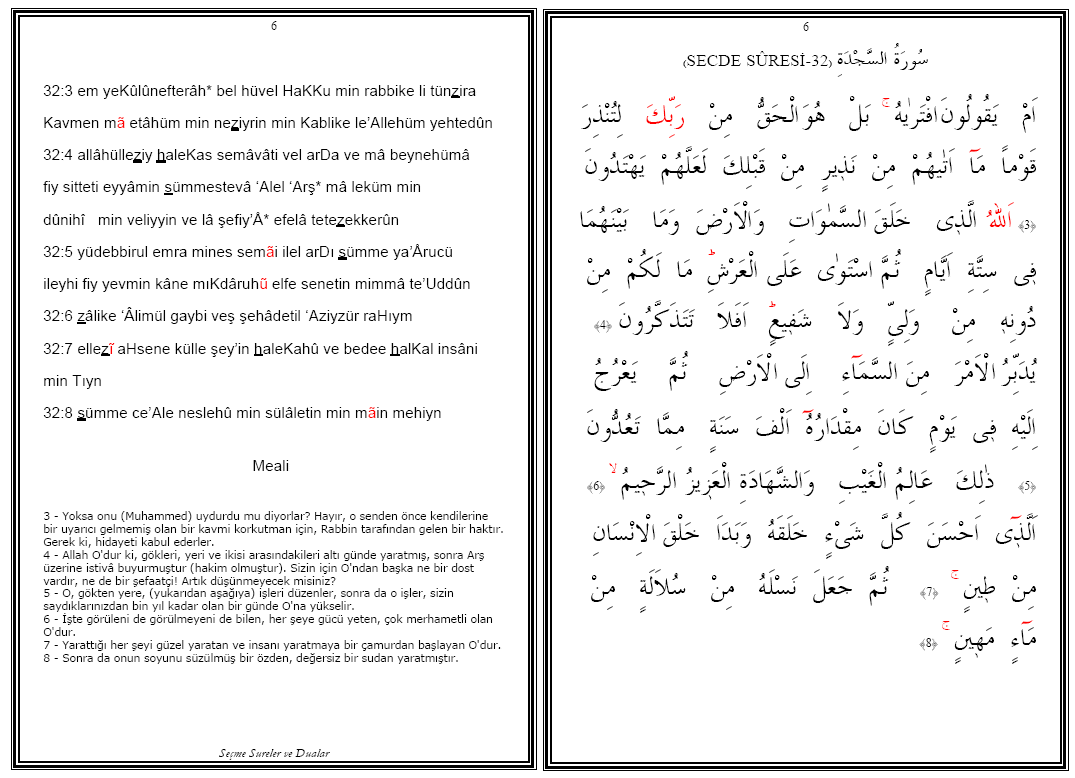 6
32:3 em yeKûlûnefterâh* bel hüvel HaKKu min rabbike li tünzira
Kavmen mã etâhüm min neziyrin min Kablike le’Allehüm yehtedûn
32:4 allâhülleziy haleKas semâvâti vel arDa ve mâ beynehümâ
fiy sitteti eyyâmin sümmestevâ ‘Alel ‘Arş* mâ leküm min
dûnihî min veliyyin ve lâ şefiy’Â* efelâ tetezekkerûn
32:5 yüdebbirul emra mines semãi ilel arDı sümme ya’Ârucü
ileyhi fiy yevmin kâne mıKdâruhũ elfe senetin mimmâ te’Uddûn
32:6 zâlike ‘Âlimül gaybi veş şehâdetil ‘Aziyzür raHıym
32:7 ellezĩ aHsene külle şey’in haleKahû ve bedee halKal insâni
min Tıyn
32:8 sümme ce’Ale neslehû min sülâletin min mãin mehiyn
Meali
3 - Yoksa onu (Muhammed) uydurdu mu diyorlar? Hayır, o senden önce kendilerine
bir uyarıcı gelmemiş olan bir kavmi korkutman için, Rabbin tarafından gelen bir haktır.
Gerek ki, hidayeti kabul ederler.
4 - Allah O'dur ki, gökleri, yeri ve ikisi arasındakileri altı günde yaratmış, sonra Arş
üzerine istivâ buyurmuştur (hakim olmuştur). Sizin için O'ndan başka ne bir dost
vardır, ne de bir şefaatçi! Artık düşünmeyecek misiniz?
5 - O, gökten yere, (yukarıdan aşağıya) işleri düzenler, sonra da o işler, sizin
saydıklarınızdan bin yıl kadar olan bir günde O'na yükselir.
6 - İşte görüleni de görülmeyeni de bilen, her şeye gücü yeten, çok merhametli olan
O'dur.
7 - Yarattığı her şeyi güzel yaratan ve insanı yaratmaya bir çamurdan başlayan O'dur.
8 - Sonra da onun soyunu süzülmüş bir özden, değersiz bir sudan yaratmıştır.
Seçme Sureler ve Dualar
6
سُورَةُ السَّجْدَةِ (SECDE SÛRESİ-32)
اَمْ يَقُولُونَ افْتَرٰيهُۚ بَلْ هُوَ الْحَقُّ مِنْ رَبِّكَ لِتُنْذِرَ
قَوْماً مَآ اَتٰيهُمْ مِنْ نَذ۪يرٍ مِنْ قَبْلِكَ لَعَلَّهُمْ يَهْتَدُونَ
﴿3﴾ اَللّٰهُ الَّذ۪ى خَلَقَ السَّمٰوَاتِ وَالْاَرْضَ وَمَا بَيْنَهُمَا
ف۪ى سِتَّةِ اَيَّامٍ ثُمَّ اسْتَوٰى عَلَى الْعَرْشِۜ مَا لَكُمْ مِنْ
دُونِه۪ مِنْ وَلِىٍّ وَلَا شَف۪يعٍۜ اَفَلَا تَتَذَكَّرُونَ ﴿4﴾
يُدَبِّرُ الْاَمْرَ مِنَ السَّمَآءِ اِلَى الْاَرْضِ ثُمَّ يَعْرُجُ
اِلَيْهِ ف۪ى يَوْمٍ كَانَ مِقْدَارُهُٓ اَلْفَ سَنَةٍ مِمَّا تَعُدُّونَ
﴿5﴾ ذٰلِكَ عَالِمُ الْغَيْبِ وَالشَّهَادَةِ الْعَز۪يزُ الرَّح۪يمُۙ ﴿6﴾
اَلَّذ۪ٓى اَحْسَنَ كُلَّ شَىْءٍ خَلَقَهُ وَبَدَاَ خَلْقَ الْاِنْسَانِ
مِنْ ط۪ينٍۚ ﴿7﴾ ثُمَّ جَعَلَ نَسْلَهُ مِنْ سُلَالَةٍ مِنْ
مَآءٍ مَه۪ينٍۚ ﴿8﴾